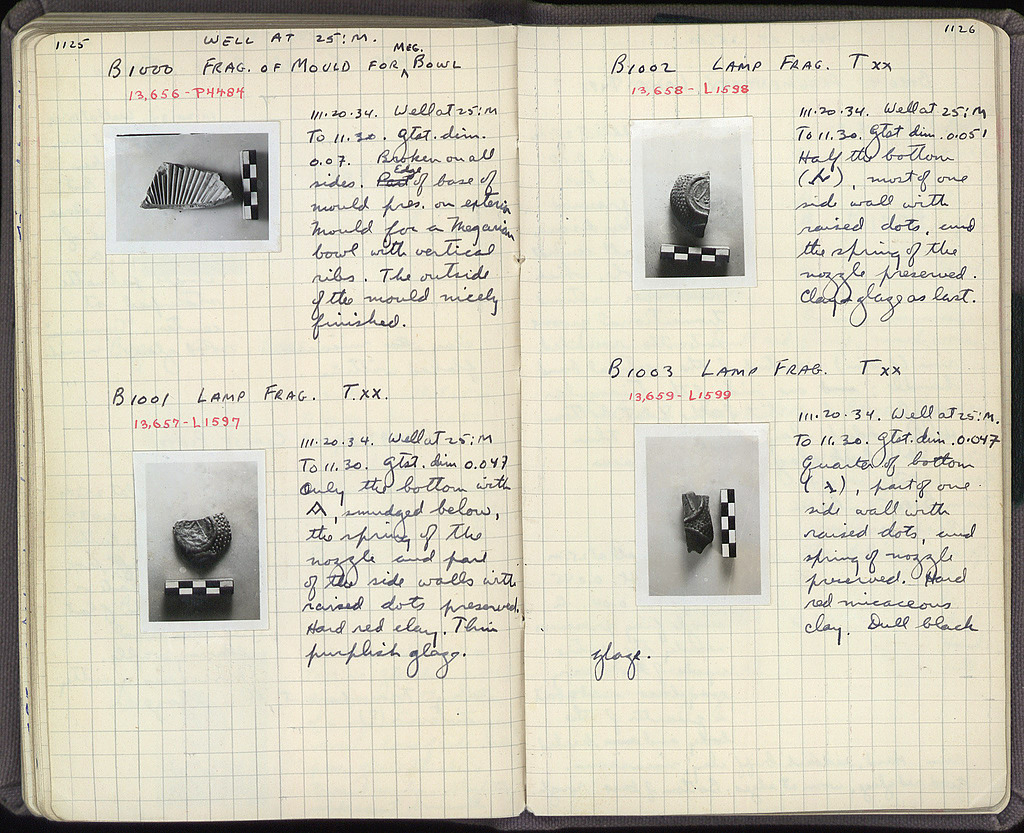 1125
WELL AT 25:M.
B1000 FRAG. OF MOULD FOR MEG. BOWL
13,656-P4484
III.20.34. Well at 25:M
To 11.30. gtst. dim.
0.07. Broken on all
sides. Part Edge of base of
mould pres. on exterior
Mould for a Megarian
bowl with vertical
ribs. The outside
of the mould nicely
finished.
B1001 LAMP FRAG. T.XX.
13,657-L1597
III.20.34. Well at 25:M
To 11.30. Gtst. dim 0.047
Only the bottom with
A, smudged below,
the spring of the
nozzle and part
of the side walls with
raised dots preserved.
Hard red clay. Thin
purplish glaze.
1126
B1002 LAMP FRAG. T XX
13,658-L1598
III.20.34. Well at 25:M
To 11.30. Gtst dim. 0.051
Half the bottom
( ), most of one
side wall with
raised dots, and
the spring of the
nozzle preserved.
Clay & glaze as last.
B1003 LAMP FRAG. T XX
13,659-L1599
III.20.34. Well at 25:M.
To 11.30. gtst. dim. 0.047
Quarter of bottom
( ), part of one
side wall with
raised dots, and
spring of nozzle
preserved. Hard
red micaceous
clay. Dull black
glaze.